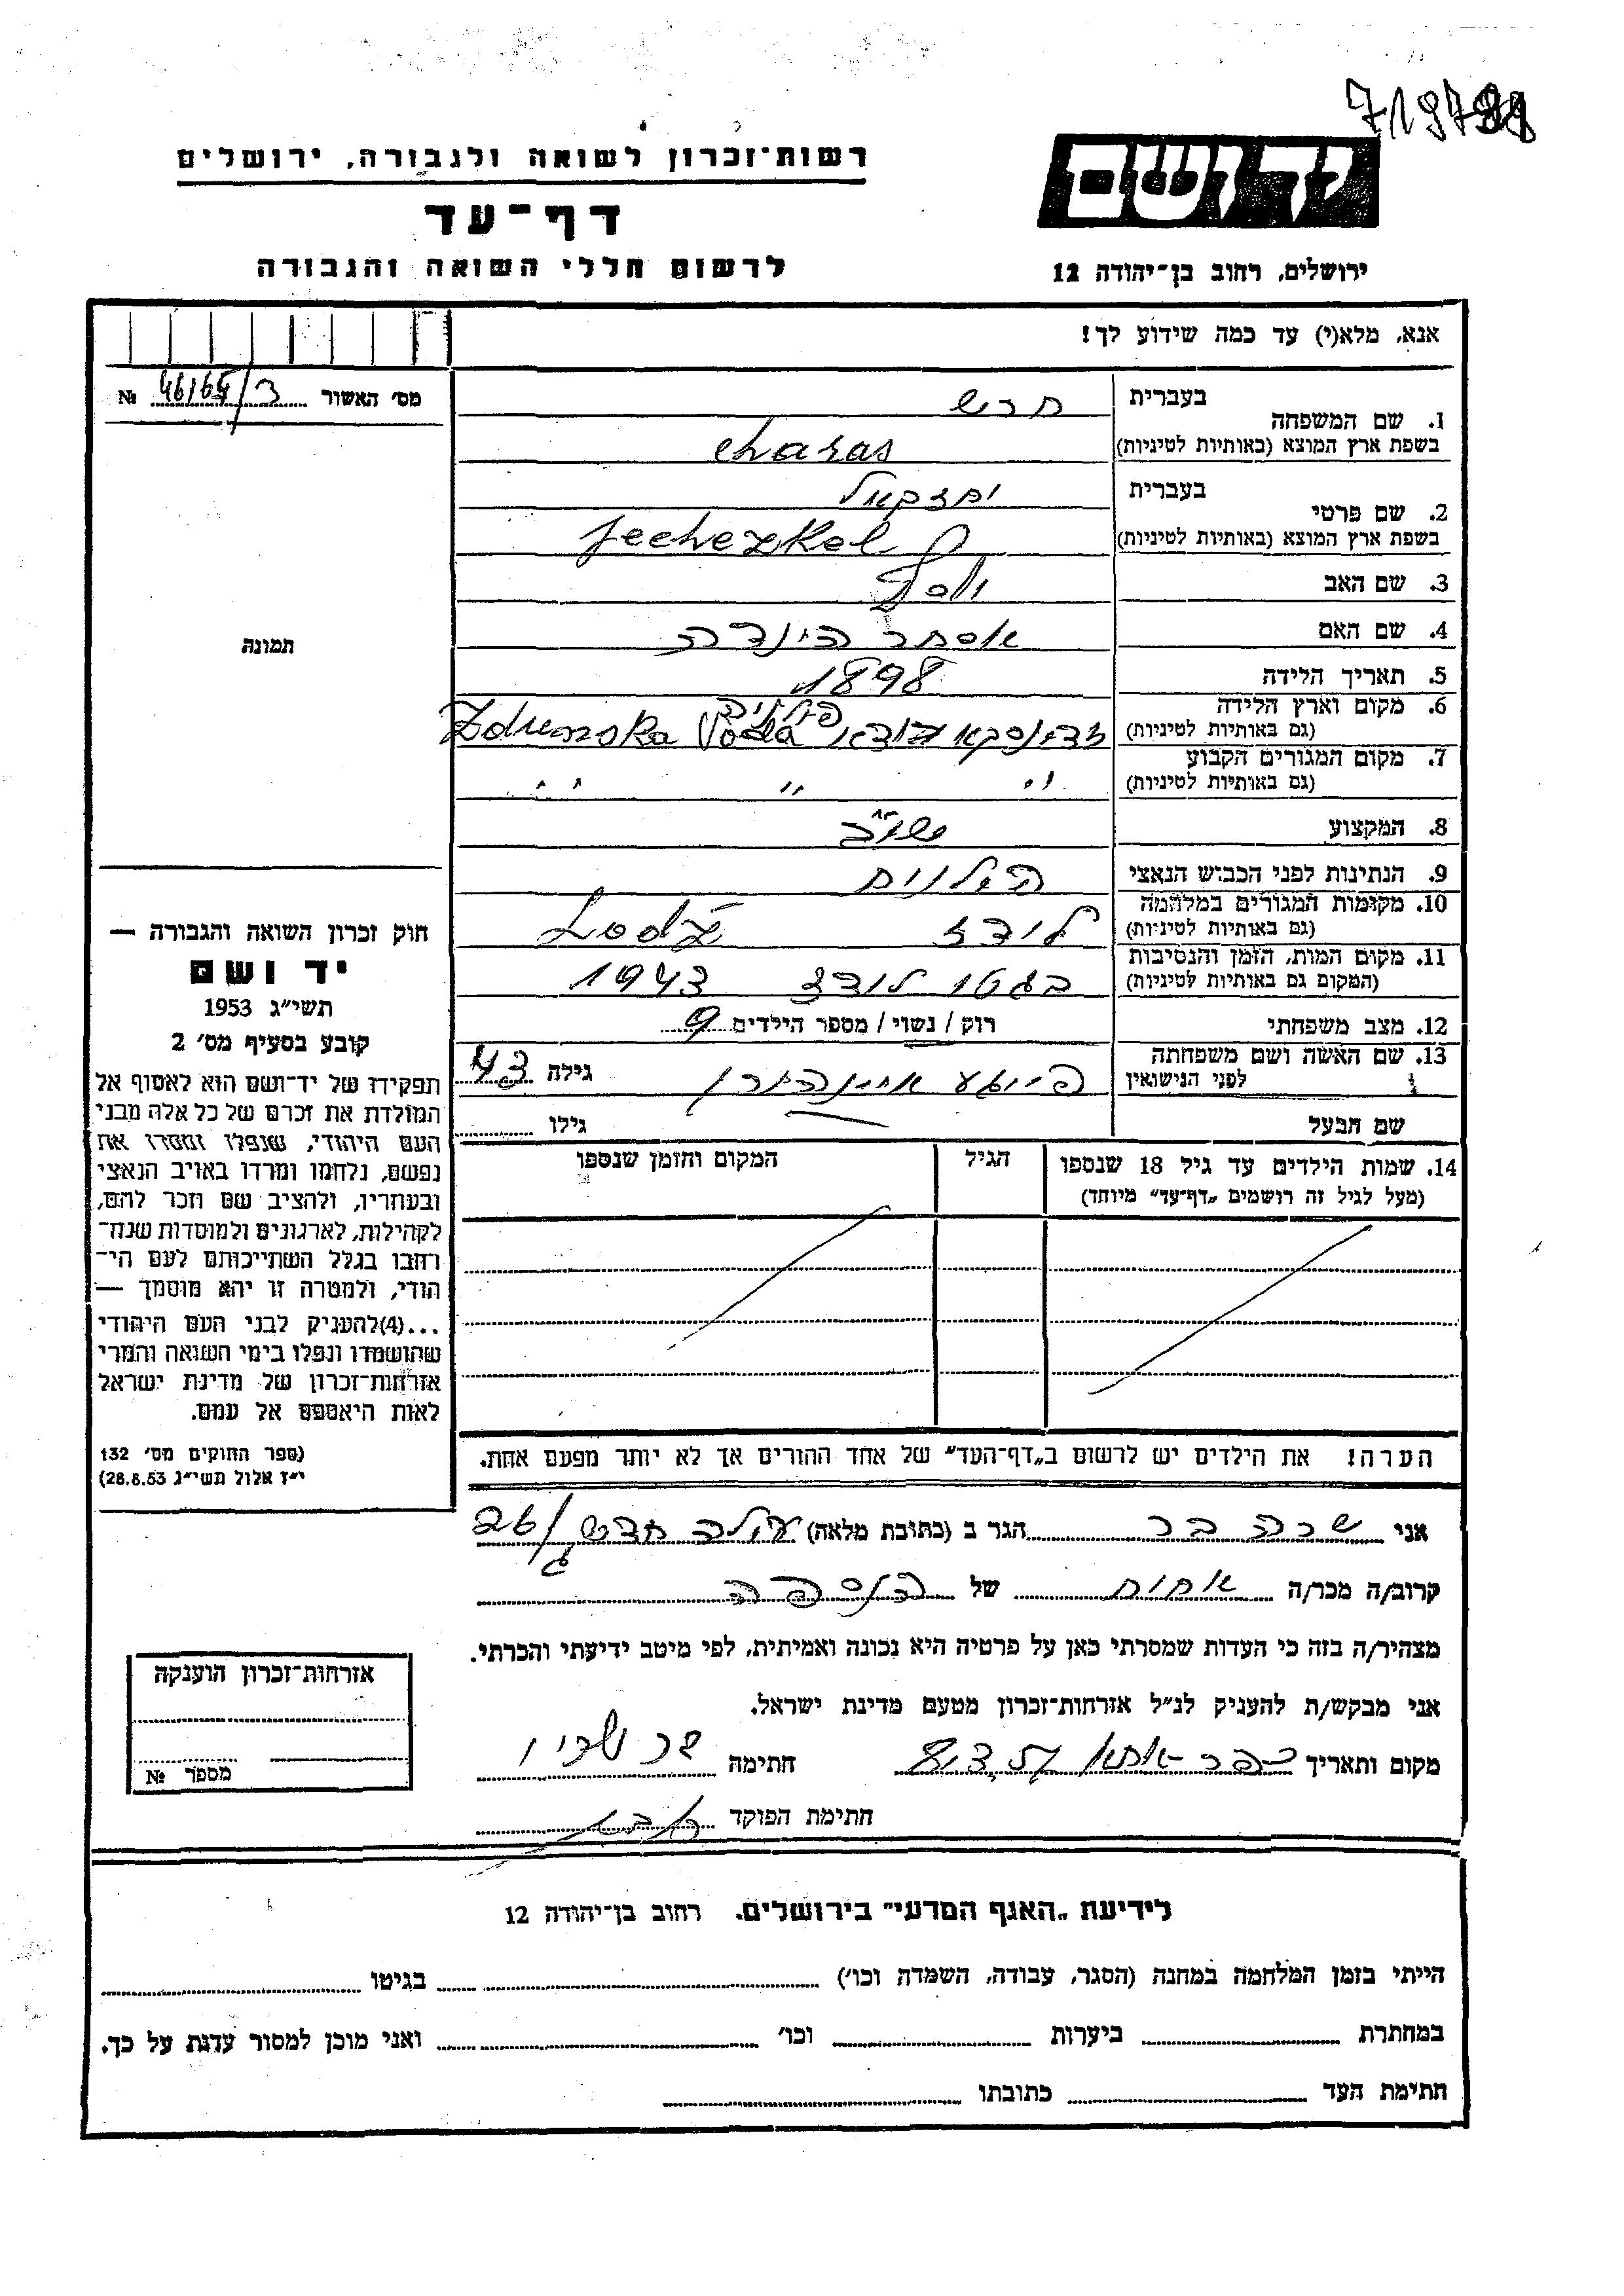 719791
רשות־זכרון לשואה ולגבורה, ירושלים
יד ושם
דף־עד
לרשום חללי השואה והגבורה
ירושלים, רחוב בן־יהודה 12
אנא, מלא(י) עד כמה שידוע לך!
מס׳ האשור 46/64/3 №
תמונה
בעברית חרש
1. שם המשפחה
בשפת ארץ המוצא (באותיות לטיניות) charas
בעברית יחזקאל
2. שם פרטי
בשפת ארץ המוצא (באותיות לטיניות) Jechezkel
3. שם האב יוסף
4. שם האם אסתר הינדה
5. תאריך הלידה 1898
6. מקום וארץ הלידה פולניה
(גם באותיות לטיניות) Zdunska Vola
7. מקום המגורים הקבוע
(גם באותיות לטיניות) " " "
8. המקצוע שו"ב
9. הנתינות לפני הכבוש הנאצי
10. מקומות המגורים במלחמה
(גם באותיות לטיניות) לודז Lodź
11. מקום המות, הזמן והנסיבות
(המקום גם באותיות לטיניות) בגטו לודז 1943
12. מצב משפחתי רוק / נשוי / מספר הילדים 9
13. שם האשה ושם משפחתה
לפני הנישואין גילה 43
שם הבעל גילו
14. שמות הילדים עד גיל 18 שנספו הגיל המקום והזמן שנספו
(מעל לגיל זה רושמים „דף־עד” מיוחד)
הערה! את הילדים יש לרשום ב„דף־העד” של אחד ההורים אך לא יותר מפעם אחת.
חוק זכרון השואה והגבורה —
יד ושם
תשי״ג 1953
קובע בסעיף מס׳ 2
תפקידו של יד־ושם הוא לאסוף אל
המולדת את זכרם של כל אלה מבני
העם היהודי, שנפלו ומסרו את
נפשם, נלחמו ומרדו באויב הנאצי
ובעוזריו, ולהציב שם וזכר להם,
לקהילות, לארגונים ולמוסדות שנח־
רחבו בגלל השתייכותם לעם הי־
הודי, ולמטרה זו יהא מוסמך —
...(4)להעניק לבני העם היהודי
שהושמדו ונפלו בימי השואה והמרי
אזרחות־זכרון של מדינת ישראל
לאות היאספם אל עמם.
(ספר החוקים מס׳ 132
י״ז אלול תשי״ג 28.8.53)
אני שרה בר הגר ב (כתובת מלאה)
קרוב/ה מכר/ה אחות של הנספה
מצהיר/ה בזה כי העדות שמסרתי כאן על פרטיה היא נכונה ואמיתית, לפי מיטב ידיעתי והכרתי.
אני מבקש/ת להעניק לנ״ל אזרחות־זכרון מטעם מדינת ישראל.
מקום ותאריך כפר אתא חתימה
חתימת הפוקד
אזרחות־זכרון הוענקה
מספר №
לידיעת „האגף המדעי” בירושלים. רחוב בן־יהודה 12
הייתי בזמן המלחמה במחנה (הסגר, עבודה, השמדה וכו׳) בגיטו
במחתרת ביערות וכו׳ ואני מוכן למסור עדות על כך.
חתימת העד כתובתו